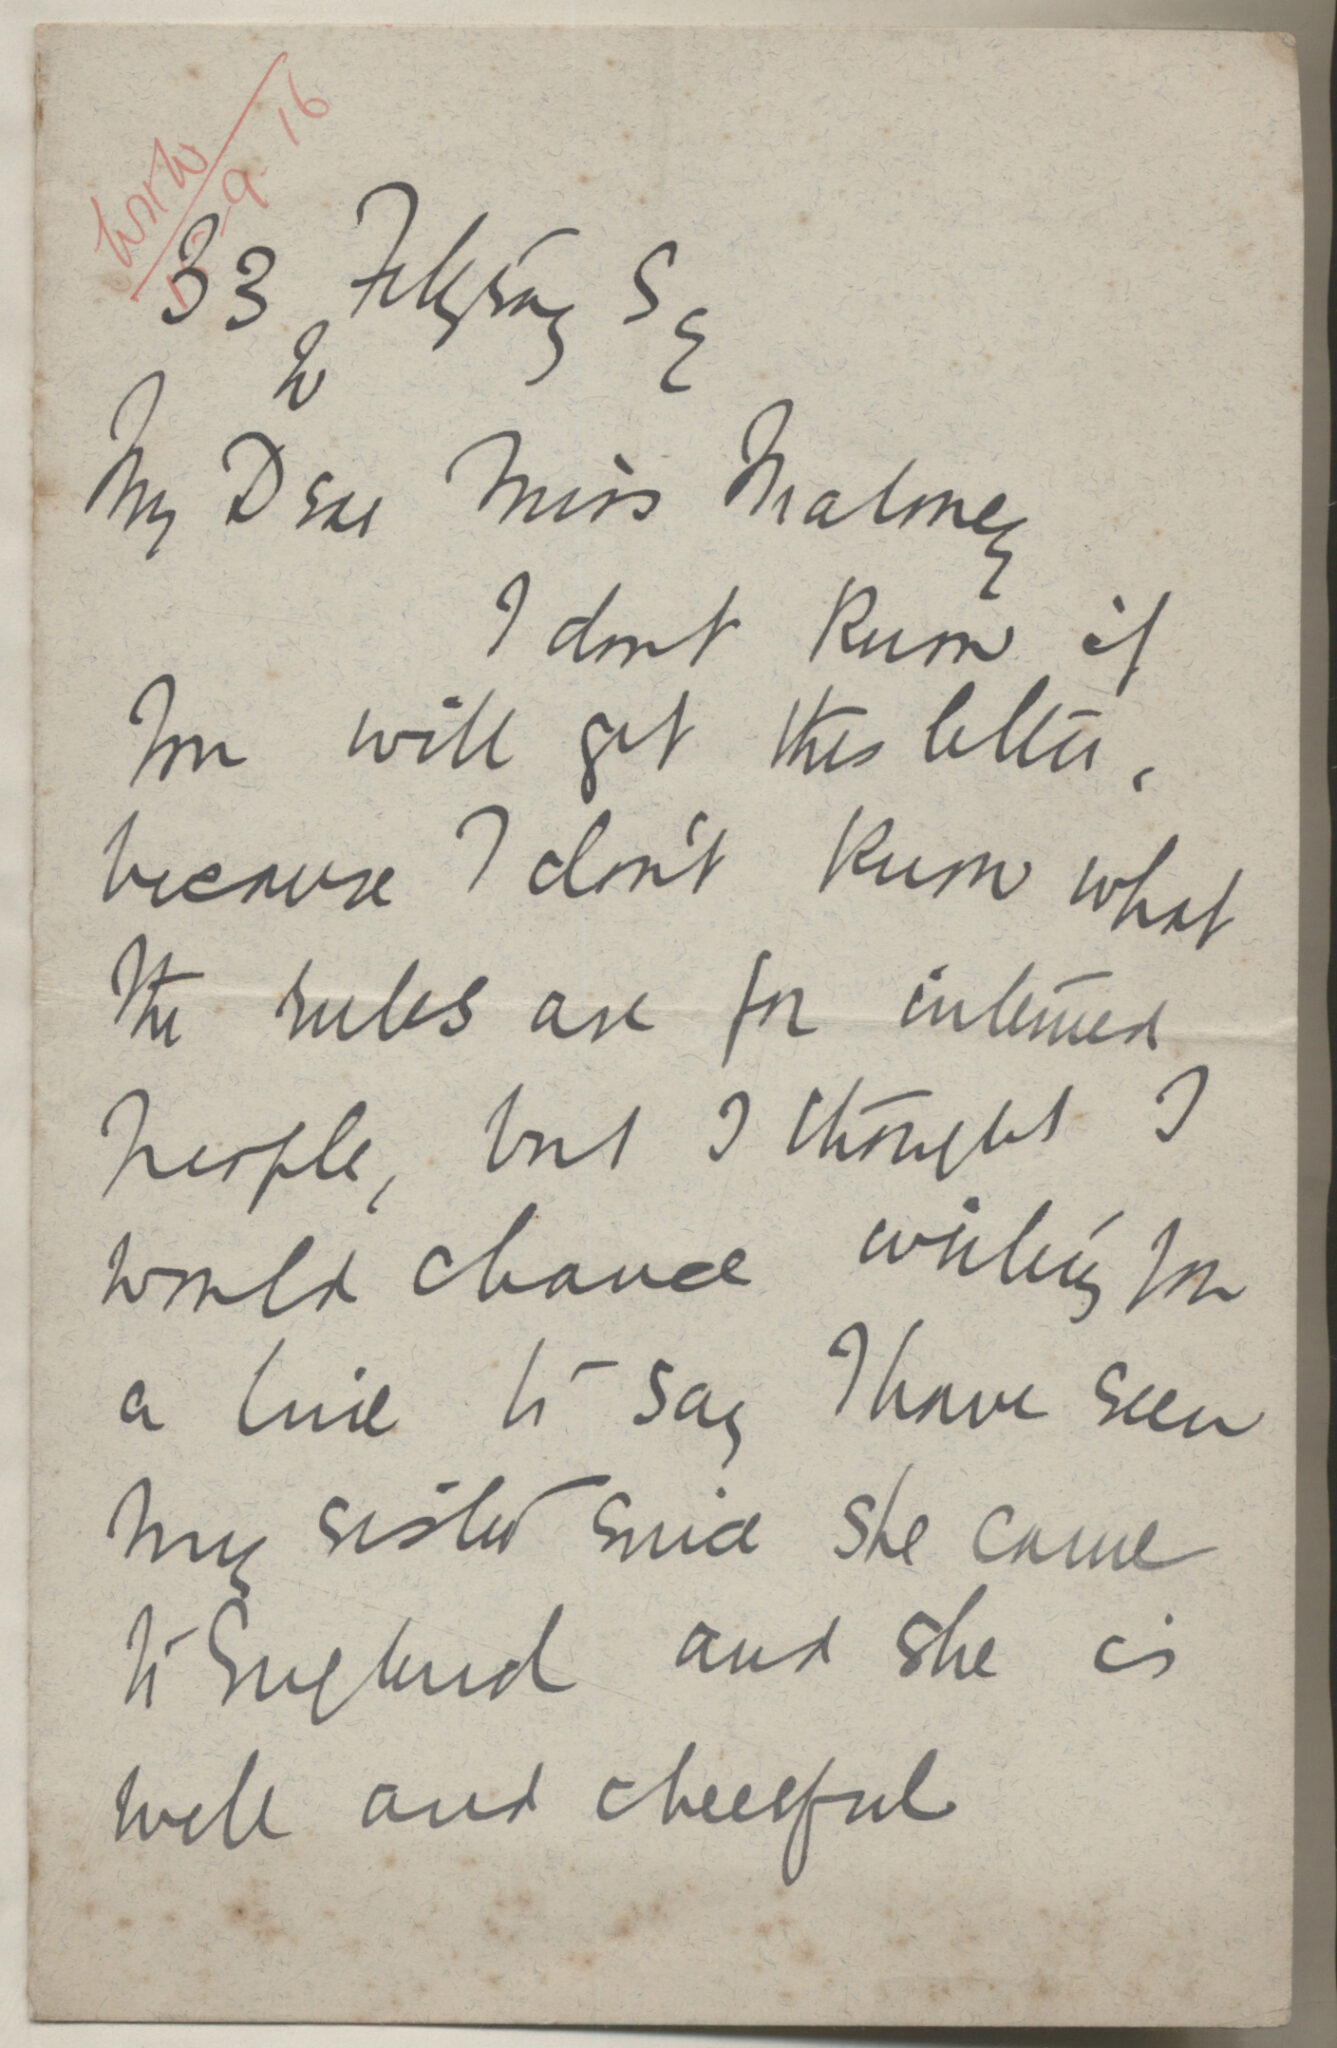 9. 16
33 Fitzroy Sq
W
My Dear Miss Maloney
I dont know if
you will get this letter,
because I don't know what
the rules are for interned
people, but I thought I
would chance writing you
a line to say I have seen
my sister since she came
to England and she is
well and cheerful